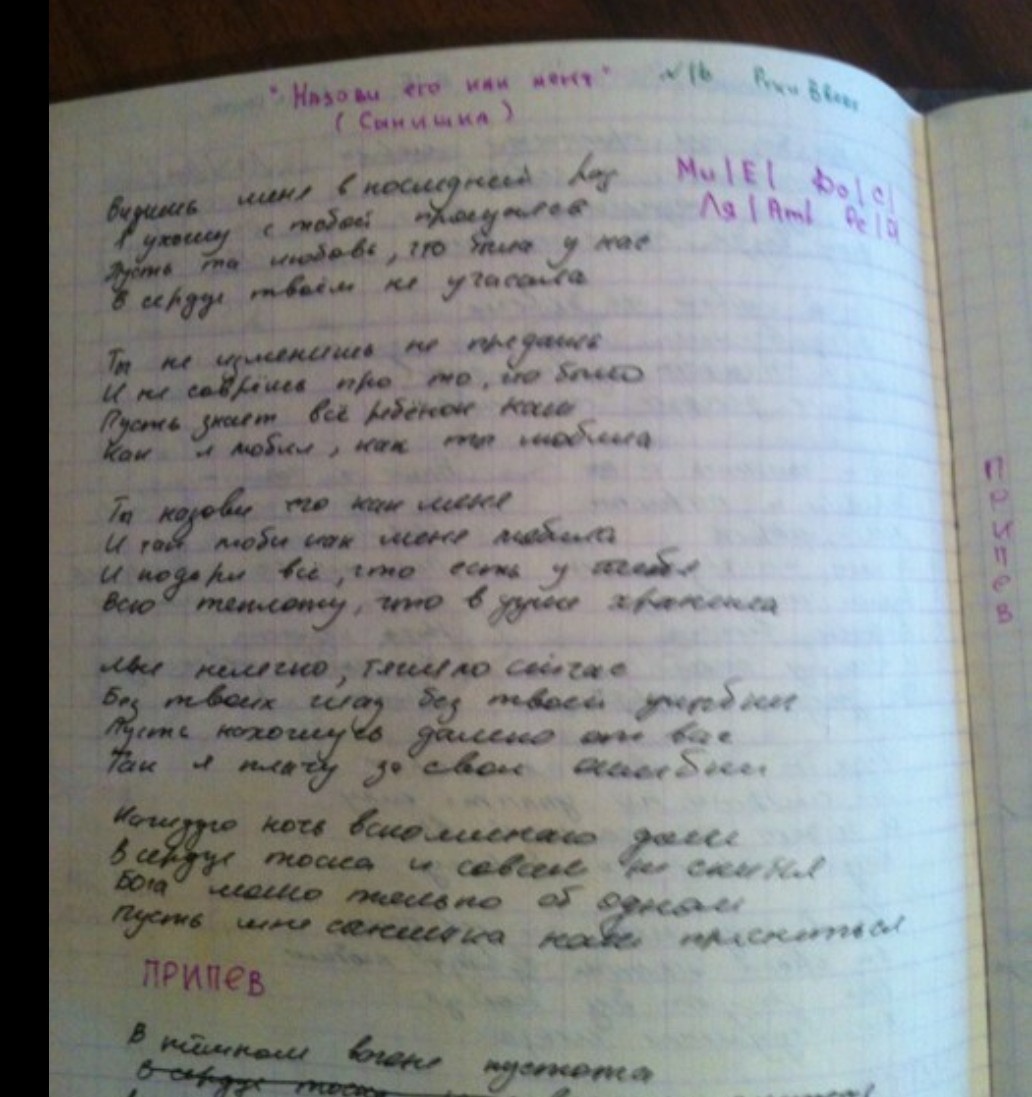 "Назови его как меня" №16 Руки Вверх
(Сынишка)
Ми|E| До|C|
Ля|Am| Ре|D|
Видишь меня в последний раз
Я ухожу с тобой прощаясь
Пусть та любовь, что была у нас
В сердце твоём не угасала
Ты не изменишь не предашь
И не соврёшь про то, что было
Пусть знает всё ребёнок наш
Как я любил, как ты любила
Ты назови его как меня
И так люби как меня любила
И подари всё, что есть у тебя
Всю теплоту, что в душе хранила
Мне нелегко, тяжело сейчас
Без твоих глаз без твоей улыбки
Пусть нахожусь далеко от вас
Так я плачу за свои ошибки
Каждую ночь вспоминаю дом
В сердце тоска и совсем не спится
Бога молю только об одном
Пусть мне санишка наш присниться
ПРИПЕВ
В тёмном вагоне пустота
В сердце тоска
ПРИПЕВ